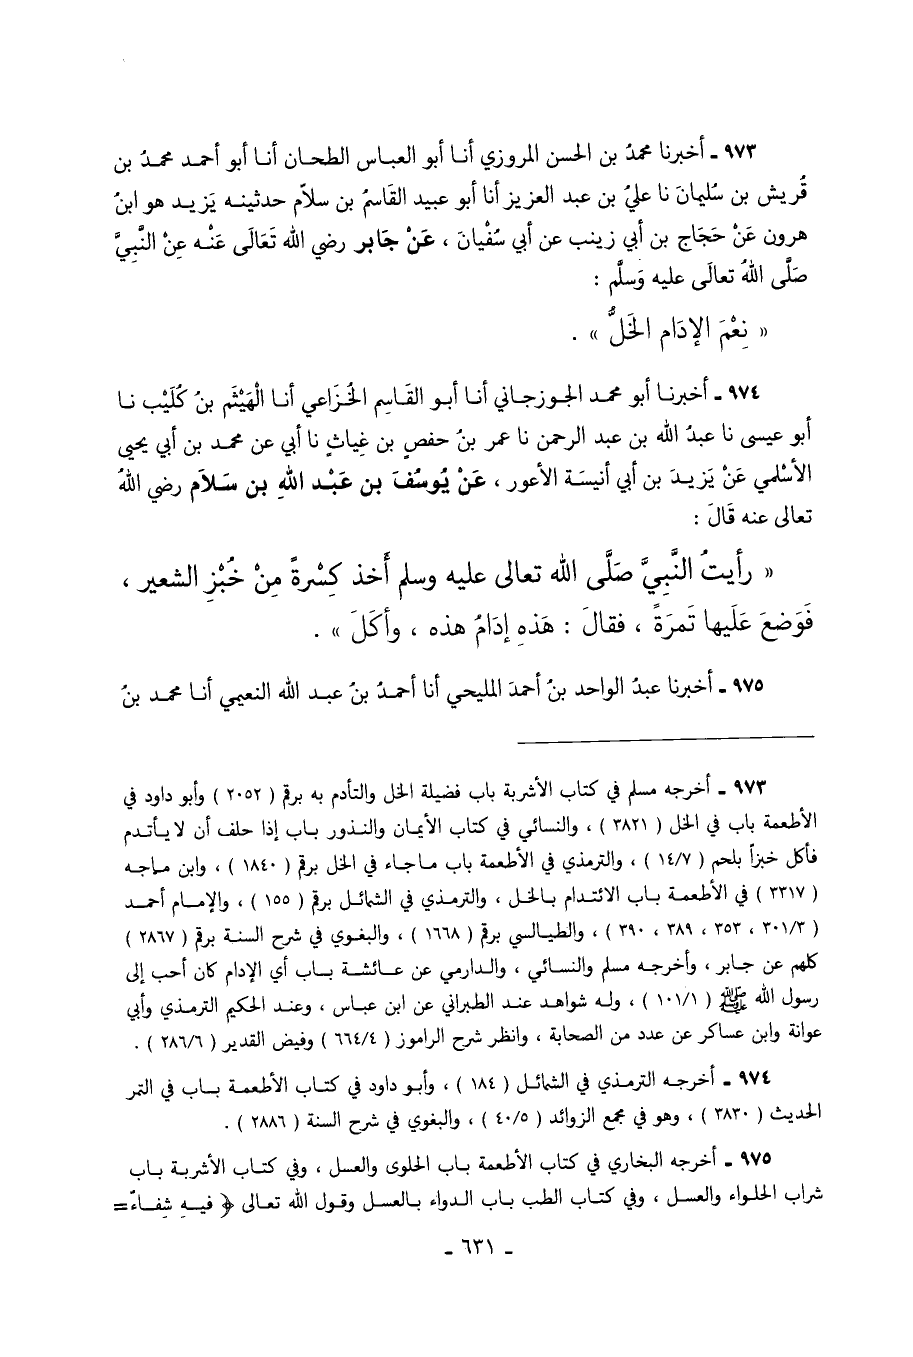 ٩٧٣ ـ أخبرنا محمدُ بن الحسن المروزي أنـا أبو العبـاس الطحـان أنـا أبو أحمـد محمـدُ بن
قُريش بن سُليمانَ نا عليُ بن عبد العزيز أنا أبو عبيد القاسمُ بن سلاّم حدثينـه يَزيـد هو ابنُ
هرون عَنْ حَجَاج بن أبي زينب عن أبي سُفْيانَ ، عَنْ جَابر رضي الله تَعَالَى عَنْـه عِنْ النَّبيَّ
صَلَّى اللهُ تعالَى عليه وَسلَّم :
« نِعْمَ الإدَام الخَلُّ » .
٩٧٤ ـ أخبرنـا أبو محمـد الجـوزجـاني أنـا أبـو القـاسِم الخُزاعي أنـا الْهَيْثَم بنُ كُلَيْب نـا
أبو عيسى نا عبدُ الله بن عبد الرحمن نا عمر بنُ حفص بن غِياثٍ نا أبي عن محمـد بن أبي يحيى
الأسْلمي عَنْ يَزيـدَ بن أبي أنيسَـة الأعور ، عَنْ يُوسُفَ بن عَبْـد اللهِ بن سَـلاَم رضي اللهُ
تعالى عنه قَالَ :
« رأيتُ النَّبيَّ صَلَّى الله تعالى عليه وسلم أَخذ كِسْرةً مِنْ خُبْزِ الشعير ،
فَوَضعَ عَلَيها تَمرَةً ، فقالَ : هَذهِ إدَامُ هذه ، وأكَلَ » .
٩٧٥ ـ أخبرنا عبدُ الواحد بنُ أحمدَ المليحي أنا أحمدُ بنُ عبـد الله النعيمي أنـا محمـد بنُ
٩٧٣ ـ أخرجه مسلم في كتاب الأشربة باب فضيلة الخل والتأدم به برقم ( ٢٠٥٢ ) وأبو داود في
الأطعمة باب في الخل ( ٣٨٢١ ) ، والنسائي في كتاب الأيمان والنـذور بـاب إذا حلف أن لا يـأتـدم
فأكل خبزاً بلحم ( ١٤/٧ ) ، والترمذي في الأطعمة باب مـاجـاء في الخل برقم ( ١٨٤٠ ) ، وابن مـاجـه
( ٣٣١٧ ) في الأطعمـة بـاب الائتـدام بـالخـل ، والترمـذي في الشمائـل برقم ( ١٥٥ ) ، والإمـام أحمـد
( ٣٠١/٣ ، ٣٥٣ ، ٣٨٩ ، ٣٩٠ ) ، والطيـالسي برقم ( ١٦٦٨ ) ، والبغـوي في شرح السنـة برقم ( ٢٨٦٧ )
كلهم عن جـابر ، وأخرجـه مسلم والنسـائي ، والـدارمي عن عـائشـة بـاب أي الإدام كان أحب إلى
رسول الله ﷺ ( ١٠١/١ ) ، ولـه شواهـد عنـد الطبراني عن ابن عبـاس ، وعنـد الحكيم الترمـذي وأبي
عوانة وابن عساكر عن عدد من الصحابة ، وانظر شرح الراموز ( ٦٦٤/٤ ) وفيض القدير ( ٢٨٦/٦ ) .
٩٧٤ ـ أخرجـه الترمـذي في الشمائـل ( ١٨٤ ) ، وأبـو داود في كتـاب الأطعمـة بـاب في التمر
الحديث ( ٣٨٣٠ ) ، وهو في مجمع الزوائد ( ٤٠/٥ ) ، والبغوي في شرح السنة ( ٢٨٨٦ ) .
٩٧٥ ـ أخرجه البخاري في كتاب الأطعمة باب الحلوى والعسل ، وفي كتـاب الأشربـة بـاب
شراب الحلـواء والعسـل ، وفي كتـاب الطب بـاب الـدواء بـالعسـل وقـول الله تعـالى ﴿ فيـهِ شِفـاءٌ =
ـ ٦٣١ ـ